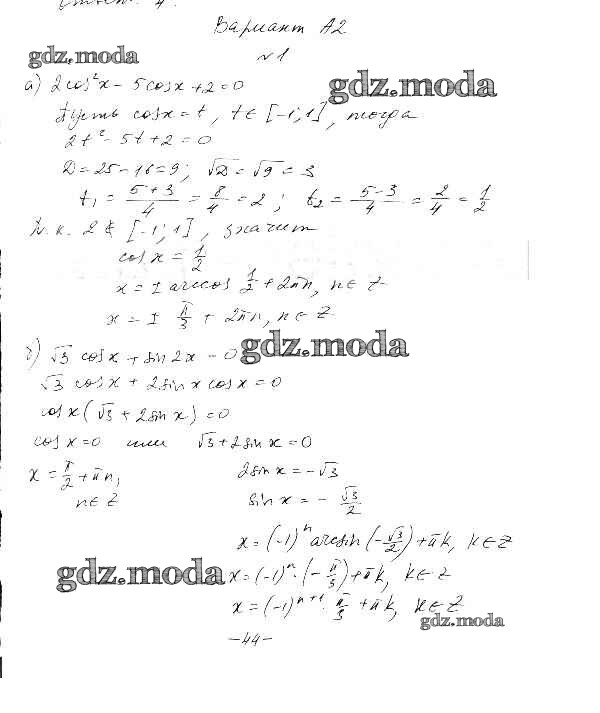 Вариант А2
gdz.moda
№1
gdz.moda
а) 2cos²x - 5cosx + 2 = 0
Пусть cosx = t, t ∈ [-1; 1], тогда
2t² - 5t + 2 = 0
D = 25 - 16 = 9; √D = √9 = 3
t₁ = (5+3)/4 = 8/4 = 2; t₂ = (5-3)/4 = 2/4 = 1/2
Т.к. 2 ∉ [-1; 1], значит
cos x = 1/2
x = ± arccos 1/2 + 2πn, n ∈ Z
x = ± π/3 + 2πn, n ∈ Z
б) √3 cosx + sin2x = 0
gdz.moda
√3 cosx + 2sinx cosx = 0
cosx(√3 + 2sinx) = 0
cosx = 0 или √3 + 2sinx = 0
x = π/2 + πn, 2sinx = -√3
n ∈ Z sinx = - √3/2
x = (-1)ⁿ arcsin(-√3/2) + πk, k ∈ Z
gdz.moda
x = (-1)ⁿ · (-π/3) + πk, k ∈ Z
x = (-1)ⁿ⁺¹ · π/3 + πk, k ∈ Z
gdz.moda
-44-